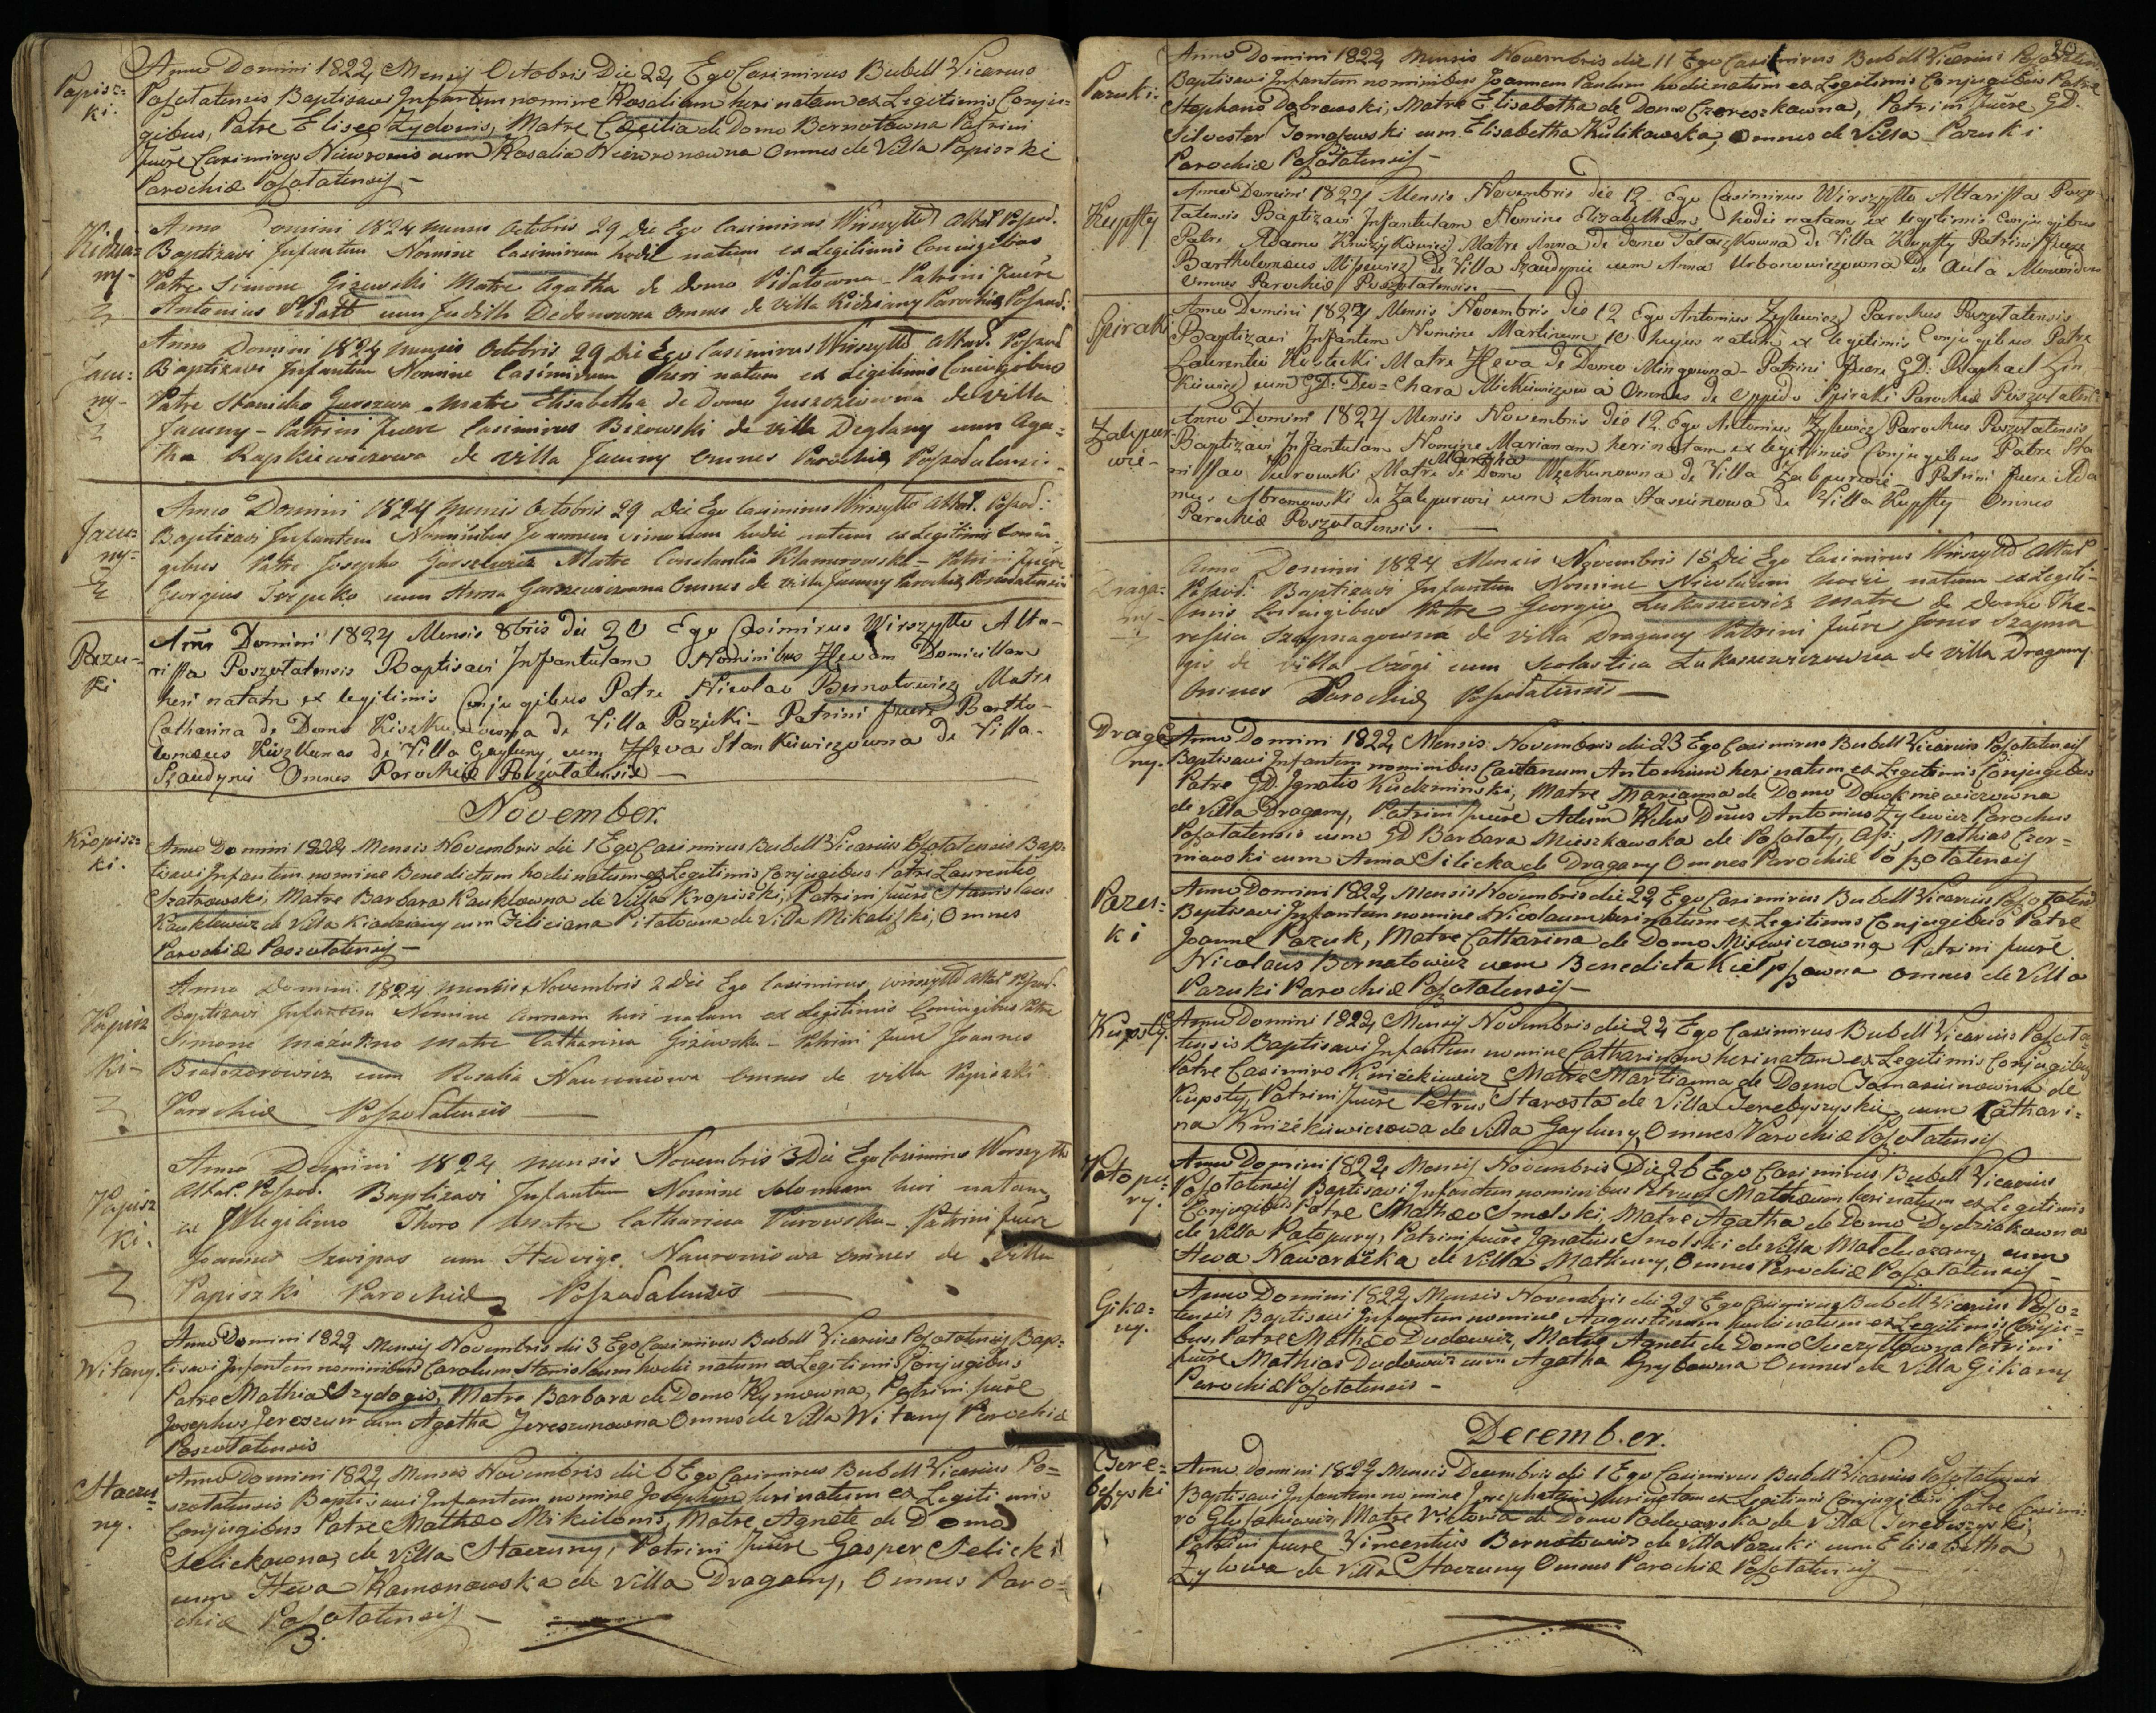 Papisz=
ki.
Anno Domini 1824 Mensis Octobris Die 24 Ego Casimirus Bubell Vicarius
Poszotatensis Baptisavi Infantem nomine Rosaliam heri natam ex Legitimis Conju=
gibus, Patre Eliseo Zydonis, Matre Cæcilia de Domo Bernotowna Patrini
fuere Casimirus Niewronis cum Rosalia Niewronowna Omnes de Villa Papiszki
Parochiæ Poszotatensis –
Kidzia=
ny-
Anno Domini 1824 mensis Octobris 29 die Ego Casimirus Wirszyłło Altar. Poszod.
Baptizavi Infantem Nomine Casimirum hodie natum ex Legitimis Coniugibus
Patre Simone Giżewski Matre Agatha de Domo Pidatowna – Patrini fuere
Antonius Pidatt cum Juditta Dedonowna Omnes de villa Kidziany Parochiæ Poszod:
Jacu=
ny-
Anno Domini 1824 mensis Octobris 29 Die Ego Casimirus Wirszyłło Altar. Poszod
Baptizavi Infantem Nomine Casimirum heri natum ex Legitimis Coniugibus
Patre Stanislao Matre Elisabetha de Domo de villa
Jacuny – Patrini fuere Casimirus Bizowski de villa Deglany cum Aga=
tha Rapkiewiczowa de villa Jacuny Omnes Parochiæ Poszodatensis
Jacu=
ny=
Anno Domini 1824 mensis Octobris 29 Die Ego Casimirus Wirszyłło Altar. Poszod.
Baptizavi Infantem Nominibus Joannem Simonem hodie natum ex Legitimis Coniu
gibus Patre Josepho Garszewicz Matre Constantia – Patrini fuere
Georgius cum Anna Garszewiczowna Omnes de villa Jacuny Parochiæ Poszodatensis
Pazu=
ki
Anno Domini 1824 Mensis 8bris die 30 Ego Casimirus Wirszyłło Alta-
rissta Poszotatensis Baptisavi Infantulam Nominibus Hevam Domicillam
heri natam ex legitimis Conjugibus Patre Nicolao Bernatowicz Matre
Catharina de Domo de Villa Pazuki – Patrini fuere Bartho-
lomæus Kiszkunas de Villa Gayluny cum Heva Stankiewiczowna de Villa-
Szaudynie Omnes Parochiæ Poszotatensis –
November.
Kropisz=
ki.
Anno Domini 1824 Mensis Novembris die 1 Ego Casimirus Bubell Vicarius Poszotatensis Bap=
tisavi Infantem nomine Benedictum hodie natum ex Legitimis Conjugibus Patre Laurentio
Szatrowski, Matre Barbara Kauklowna de Villa Kropiszki, Patrini fuere Stanislaus
Kauklewicz de Villa Kiadziany cum Feliciana Pitatowna de Villa Mikaliszki, Omnes
Parochiæ Poszotatensis –
Papisz
ki-
Anno Domini 1824 mensis Novembris 2 die Ego Casimirus Wirszyłło Altar. Poszod.
Baptizavi Infantem Nomine Annam heri natam ex Legitimis Coniugibus Patre
Simone Matre Catharina Giżewska – Patrini fuere Joannes
cum Rosalia Naureniowa Omnes de villa Papiszki
Parochiæ Poszodatensis
Papisz
ki.
Anno Domini 1824 mensis Novembris 3 Die Ego Casimirus Wirszyłło
Altar. Poszod. Baptizavi Infantem Nomine Salomeam heri natam
ex Illegitimo Thoro Matre Catharina Purowska – Patrini fuere
Joannes Szwipas cum Hedvige Nauroniowa Omnes de Villa
Papiszki Parochiæ Poszodatensis
Witany.
Anno Domini 1824 Mensis Novembris die 3 Ego Casimirus Bubell Vicarius Poszotatensis Bap=
tisavi Infantem nominibus Carolum Stanislaum hodie natum ex Legitimis Conjugibus
Patre Mathia Szydogis, Matre Barbara de Domo Kymowna, Patrini fuere
Josephus Jereszun cum Agatha Jereszunowna Omnes de Villa Witany Parochiæ
Poszotatensis
Staczu=
ny.
Anno Domini 1824 Mensis Novembris die 6 Ego Casimirus Bubell Vicarius Po=
szotatensis Baptisavi Infantem nomine Josephum heri natum ex Legitimis
Conjugibus Patre Mathæo Mikulonis, Matre Agnete de Domo
Selickowna, de Villa Staczuny, Patrini fuere Gasper Selicki
cum Heva Ramanowska de Villa Dragany, Omnes Paro=
chiæ Poszotatensis –
3.
20
Pazuki.
Anno Domini 1824 Mensis Novembris die 11 Ego Casimirus Bubell Vicarius Poszotaten
Baptisavi Infantem nominibus Joannem Paulum hodie natum ex Legitimis Conjugibus Patre
Stephano Dobrowski, Matre Elisabetha de Domo Czereszkowna, Patrini fuere GD.
Silvester Tomaszewski cum Elisabetha Kulikowska, Omnes de Villa Pazuki
Parochiæ Poszotatensis –
Kupszty
Anno Domini 1824 Mensis Novembris die 12 Ego Casimirus Wirszyłło Altarissta Poszo
tatensis Baptizavi Infantulam Nomine Elizabetham hodie natam ex legitimis Conjugibus
Patre Adamo Matre Anna de domo de Villa Kupszty Patrini fuere
Bartholomæus Misiewicz de Villa Szaudynie cum Anna Urbanowiczowna de Aula
Omnes Parochiæ Poszotatensis. –
Spiraki
Anno Domini 1824 Mensis Novembris die 12 Ego Antonius Zylewicz Parochus Poszotatensis
Baptizavi Infantem Nomine Martinum 10 hujus natum ex legitimis Conjugibus Patre
Laurentio Matre Heva de Domo Mingowna – Patrini fuere GD: Raphael Zin
kiewicz cum GD: Deo=Chara Mickiewiczowa Omnes de Oppido Spiraki Parochiæ Poszotaten:
Zalepur
wie-
Anno Domini 1824 Mensis Novembris die 12. Ego Antonius Zylewicz Parochus Poszotatensis
Baptizavi Infantulam Nomine Mariannam heri natam ex legitimis Conjugibus Patre Sta
nislao Purowski Matre de Domo de Villa Zalepurwie – Patrini fuere Ada
mus Abramowski de Zalepurwie cum Anna Stasiunowa de Villa Kupszty Omnes
Parochiæ Poszotatensis. –
Draga=
ny-
Anno Domini 1824 Mensis Novembris 15 Die Ego Casimirus Wirszyłło Altar
Poszod: Baptizavi Infantem Nomine Nicolaum hodie natum ex Legiti-
mis Coniugibus Patre Georgio Łukaszewicz Matre de domo The-
ressia Szapnagowna de villa Dragany Patrini fuere Jones Szapna
gis de villa cum Scolastica Łukaszewiczowna de villa Dragany
Omnes Parochiæ Poszodatensis –
Draga
ny.
Anno Domini 1824 Mensis Novembris die 23 Ego Casimirus Bubell Vicarius Poszotatensis
Baptisavi Infantem nominibus Caietanum Antonium heri natum ex Legitimis Conjugibus
Patre GD: Ignatio Kudzminski, Matre Marianna de Domo Dowkniewiczowna
de Villa Dragany, Patrini fuere Antonius Zylewicz Parochus
Poszotatensis cum GD Barbara Mieszkowska de Poszotaty, Mathias Czer=
niawski cum Anna Silicka de Dragany Omnes Parochiæ Poszotatensis
Pazu=
ki
Anno Domini 1824 Mensis Novembris die 24 Ego Casimirus Bubell Vicarius Poszotatens
Baptisavi Infantem nomine Nicolaum heri natum ex Legitimis Conjugibus Patre
Joanne Pazuk, Matre Catharina de Domo Misiewiczowna, Patrini fuere
Nicolaus Bernatowicz cum Benedicta Kiełpszowna Omnes de Villa
Pazuki Parochiæ Poszotatensis –
Kupsty.
Anno Domini 1824 Mensis Novembris die 24 Ego Casimirus Bubell Vicarius Poszota
tensis Baptisavi Infantem nomine Catharinam heri natam ex Legitimis Conjugibus
Patre Casimiro Kniżekiewicz Matre Marianna de Domo Tomasiunowna de
Kupsty, Patrini fuere Petrus Starosta de Villa Terebyszyskie cum Cathari=
na Kniżekiewiczowa de Villa Gayluny, Omnes Parochiæ Poszotatensis
Patopu
ry.
Anno Domini 1824 Mensis Novembris Die 26 Ego Casimirus Bubell Vicarius
Poszotatensis Baptisavi Infantem nominibus Petrum Mathæum heri natum ex Legitimis
Conjugibus Patre Mathæo Smolski, Matre Agatha de Domo Dydziökowna
de Villa Patopury, Patrini fuere Ignatius Smolski de Villa cum
Heva Nawarёcka de Villa Mathuny, Omnes Parochiæ Poszotatensis –
Gika=
ny.
Anno Domini 1824 Mensis Novembris die 29 Ego Casimirus Bubell Vicarius Poszo=
tatensis Baptisavi Infantem nomine Augustinum hodie natum ex Legitimis Conju=
gibus, Patre Mathæo Dudowicz, Matre Agnete de Domo Patrini
fuere Mathias Dudowicz cum Agatha Grybowna Omnes de Villa Gikany
Parochiæ Poszotatensis –
December.
Tere=
byszyski
Anno Domini 1824 Mensis Decembris die 1 Ego Casimirus Bubell Vicarius Poszotatensis
Baptisavi Infantem nomine heri natam ex Legitimis Conjugibus Patre Casimi=
ro Matre Victoria de Domo de Villa Terebyszyski,
Patrini fuere Vincentius Bernatowicz de Villa Pazuki cum Elisabetha
Zylowa de Villa Staczuny Omnes Parochiæ Poszotatensis –